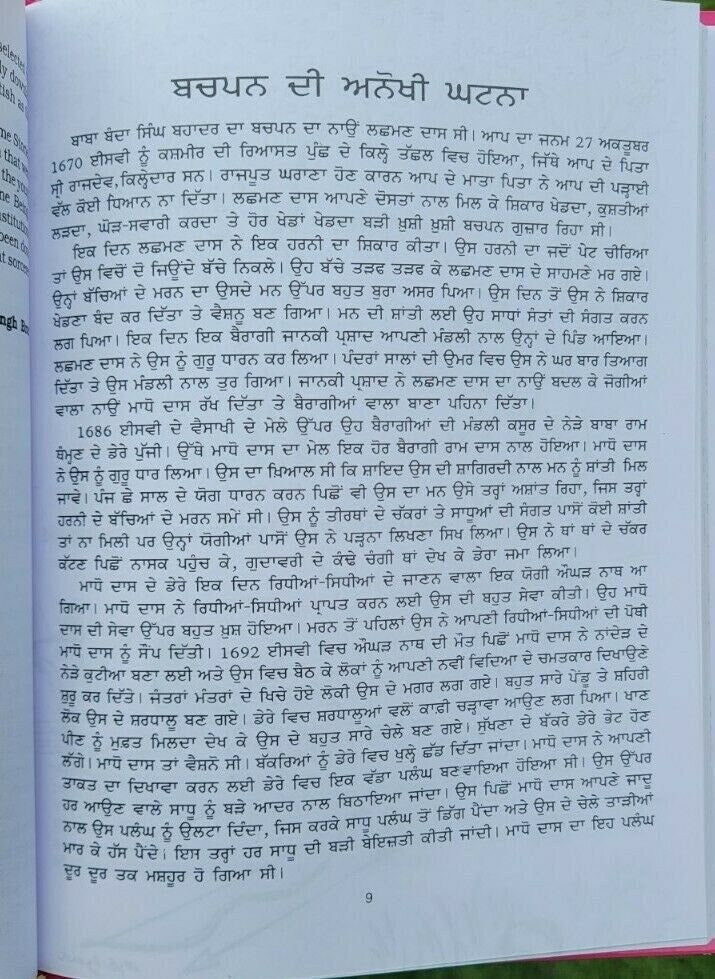 selected
ly down
tish as
me Stor
that we
the you
me Beh
stitutio
been do
at some
ngh Bo
ਬਚਪਨ ਦੀ ਅਨੋਖੀ ਘਟਨਾ
ਬਾਬਾ ਬੰਦਾ ਸਿੰਘ ਬਹਾਦਰ ਦਾ ਬਚਪਨ ਦਾ ਨਾਉਂ ਲਛਮਣ ਦਾਸ ਸੀ। ਆਪ ਦਾ ਜਨਮ 27 ਅਕਤੂਬਰ
1670 ਈਸਵੀ ਨੂੰ ਕਸ਼ਮੀਰ ਦੀ ਰਿਆਸਤ ਪੁੰਛ ਦੇ ਕਿਲ੍ਹੇ ਤੱਛਲ ਵਿਚ ਹੋਇਆ, ਜਿੱਥੇ ਆਪ ਦੇ ਪਿਤਾ
ਸ੍ਰੀ ਰਾਜਦੇਵ,ਕਿਲ੍ਹੇਦਾਰ ਸਨ। ਰਾਜਪੂਤ ਘਰਾਣਾ ਹੋਣ ਕਾਰਨ ਆਪ ਦੇ ਮਾਤਾ ਪਿਤਾ ਨੇ ਆਪ ਦੀ ਪੜ੍ਹਾਈ
ਵੱਲ ਕੋਈ ਧਿਆਨ ਨਾ ਦਿੱਤਾ। ਲਛਮਣ ਦਾਸ ਆਪਣੇ ਦੋਸਤਾਂ ਨਾਲ ਮਿਲ ਕੇ ਸ਼ਿਕਾਰ ਖੇਡਦਾ, ਕੁਸ਼ਤੀਆਂ
ਲੜਦਾ, ਘੋੜ-ਸਵਾਰੀ ਕਰਦਾ ਤੇ ਹੋਰ ਖੇਡਾਂ ਖੇਡਦਾ ਬੜੀ ਖ਼ੁਸ਼ੀ ਖ਼ੁਸ਼ੀ ਬਚਪਨ ਗੁਜ਼ਾਰ ਰਿਹਾ ਸੀ।
ਇਕ ਦਿਨ ਲਛਮਣ ਦਾਸ ਨੇ ਇਕ ਹਰਨੀ ਦਾ ਸ਼ਿਕਾਰ ਕੀਤਾ। ਉਸ ਹਰਨੀ ਦਾ ਜਦੋਂ ਪੇਟ ਚੀਰਿਆ
ਤਾਂ ਉਸ ਵਿਚੋਂ ਦੋ ਜਿਉਂਦੇ ਬੱਚੇ ਨਿਕਲੇ। ਉਹ ਬੱਚੇ ਤੜਫ ਤੜਫ ਕੇ ਲਛਮਣ ਦਾਸ ਦੇ ਸਾਹਮਣੇ ਮਰ ਗਏ।
ਉਨ੍ਹਾਂ ਬੱਚਿਆਂ ਦੇ ਮਰਨ ਦਾ ਉਸਦੇ ਮਨ ਉੱਪਰ ਬਹੁਤ ਬੁਰਾ ਅਸਰ ਪਿਆ। ਉਸ ਦਿਨ ਤੋਂ ਉਸ ਨੇ ਸ਼ਿਕਾਰ
ਖੇਡਣਾ ਬੰਦ ਕਰ ਦਿੱਤਾ ਤੇ ਵੈਸ਼ਨੂ ਬਣ ਗਿਆ। ਮਨ ਦੀ ਸ਼ਾਂਤੀ ਲਈ ਉਹ ਸਾਧਾਂ ਸੰਤਾਂ ਦੀ ਸੰਗਤ ਕਰਨ
ਲਗ ਪਿਆ। ਇਕ ਦਿਨ ਇਕ ਬੈਰਾਗੀ ਜਾਨਕੀ ਪ੍ਰਸ਼ਾਦ ਆਪਣੀ ਮੰਡਲੀ ਨਾਲ ਉਨ੍ਹਾਂ ਦੇ ਪਿੰਡ ਆਇਆ।
ਲਛਮਣ ਦਾਸ ਨੇ ਉਸ ਨੂੰ ਗੁਰੂ ਧਾਰਨ ਕਰ ਲਿਆ। ਪੰਦਰਾਂ ਸਾਲਾਂ ਦੀ ਉਮਰ ਵਿਚ ਉਸ ਨੇ ਘਰ ਬਾਰ ਤਿਆਗ
ਦਿੱਤਾ ਤੇ ਉਸ ਮੰਡਲੀ ਨਾਲ ਤੁਰ ਗਿਆ। ਜਾਨਕੀ ਪ੍ਰਸ਼ਾਦ ਨੇ ਲਛਮਣ ਦਾਸ ਦਾ ਨਾਉਂ ਬਦਲ ਕੇ ਜੋਗੀਆਂ
ਵਾਲਾ ਨਾਉਂ ਮਾਧੋ ਦਾਸ ਰੱਖ ਦਿੱਤਾ ਤੇ ਬੈਰਾਗੀਆਂ ਵਾਲਾ ਬਾਣਾ ਪਹਿਨਾ ਦਿੱਤਾ।
1686 ਈਸਵੀ ਦੇ ਵੈਸਾਖੀ ਦੇ ਮੇਲੇ ਉੱਪਰ ਉਹ ਬੈਰਾਗੀਆਂ ਦੀ ਮੰਡਲੀ ਕਸੂਰ ਦੇ ਨੇੜੇ ਬਾਬਾ ਰਾਮ
ਥੰਮ੍ਹਣ ਦੇ ਡੇਰੇ ਪੁੱਜੀ। ਉੱਥੇ ਮਾਧੋ ਦਾਸ ਦਾ ਮੇਲ ਇਕ ਹੋਰ ਬੈਰਾਗੀ ਰਾਮ ਦਾਸ ਨਾਲ ਹੋਇਆ। ਮਾਧੋ ਦਾਸ
ਨੇ ਉਸ ਨੂੰ ਗੁਰੂ ਧਾਰ ਲਿਆ। ਉਸ ਦਾ ਖ਼ਿਆਲ ਸੀ ਕਿ ਸ਼ਾਇਦ ਉਸ ਦੀ ਸ਼ਾਗਿਰਦੀ ਨਾਲ ਮਨ ਨੂੰ ਸ਼ਾਂਤੀ ਮਿਲ
ਜਾਵੇ। ਪੰਜ ਛੇ ਸਾਲ ਦੇ ਯੋਗ ਧਾਰਨ ਕਰਨ ਪਿਛੋਂ ਵੀ ਉਸ ਦਾ ਮਨ ਉਸੇ ਤਰ੍ਹਾਂ ਅਸ਼ਾਂਤ ਰਿਹਾ, ਜਿਸ ਤਰ੍ਹਾਂ
ਹਰਨੀ ਦੇ ਬੱਚਿਆਂ ਦੇ ਮਰਨ ਸਮੇਂ ਸੀ। ਉਸ ਨੂੰ ਤੀਰਥਾਂ ਦੇ ਚੱਕਰਾਂ ਤੇ ਸਾਧੂਆਂ ਦੀ ਸੰਗਤ ਪਾਸੋਂ ਕੋਈ ਸ਼ਾਂਤੀ
ਤਾਂ ਨਾ ਮਿਲੀ ਪਰ ਉਨ੍ਹਾਂ ਯੋਗੀਆਂ ਪਾਸੋਂ ਉਸ ਨੇ ਪੜ੍ਹਨਾ ਲਿਖਣਾ ਸਿਖ ਲਿਆ। ਉਸ ਨੇ ਥਾਂ ਥਾਂ ਦੇ ਚੱਕਰ
ਕੱਟਣ ਪਿਛੋਂ ਨਾਸਕ ਪਹੁੰਚ ਕੇ, ਗੁਦਾਵਰੀ ਦੇ ਕੰਢੇ ਚੰਗੀ ਥਾਂ ਦੇਖ ਕੇ ਡੇਰਾ ਜਮਾ ਲਿਆ।
ਮਾਧੋ ਦਾਸ ਦੇ ਡੇਰੇ ਇਕ ਦਿਨ ਰਿਧੀਆਂ-ਸਿਧੀਆਂ ਦੇ ਜਾਣਨ ਵਾਲਾ ਇਕ ਯੋਗੀ ਔਘੜ ਨਾਥ ਆ
ਗਿਆ। ਮਾਧੋ ਦਾਸ ਨੇ ਰਿਧੀਆਂ-ਸਿਧੀਆਂ ਪ੍ਰਾਪਤ ਕਰਨ ਲਈ ਉਸ ਦੀ ਬਹੁਤ ਸੇਵਾ ਕੀਤੀ। ਉਹ ਮਾਧੋ
ਦਾਸ ਦੀ ਸੇਵਾ ਉੱਪਰ ਬਹੁਤ ਖ਼ੁਸ਼ ਹੋਇਆ। ਮਰਨ ਤੋਂ ਪਹਿਲਾਂ ਉਸ ਨੇ ਆਪਣੀ ਰਿਧੀਆਂ-ਸਿਧੀਆਂ ਦੀ ਪੋਥੀ
ਮਾਧੋ ਦਾਸ ਨੂੰ ਸੌਂਪ ਦਿੱਤੀ। 1692 ਈਸਵੀ ਵਿਚ ਔਘੜ ਨਾਥ ਦੀ ਮੌਤ ਪਿਛੋਂ ਮਾਧੋ ਦਾਸ ਨੇ ਨਾਂਦੇੜ ਦੇ
ਨੇੜੇ ਕੁਟੀਆ ਬਣਾ ਲਈ ਅਤੇ ਉਸ ਵਿਚ ਬੈਠ ਕੇ ਲੋਕਾਂ ਨੂੰ ਆਪਣੀ ਨਵੀਂ ਵਿਦਿਆ ਦੇ ਚਮਤਕਾਰ ਦਿਖਾਉਣੇ
ਸ਼ੁਰੂ ਕਰ ਦਿੱਤੇ। ਜੰਤਰਾਂ ਮੰਤਰਾਂ ਦੇ ਖਿਚੇ ਹੋਏ ਲੋਕੀ ਉਸ ਦੇ ਮਗਰ ਲਗ ਗਏ। ਬਹੁਤ ਸਾਰੇ ਪੇਂਡੂ ਤੇ ਸ਼ਹਿਰੀ
ਲੋਕ ਉਸ ਦੇ ਸ਼ਰਧਾਲੂ ਬਣ ਗਏ। ਡੇਰੇ ਵਿਚ ਸ਼ਰਧਾਲੂਆਂ ਵਲੋਂ ਕਾਫ਼ੀ ਚੜ੍ਹਾਵਾ ਆਉਣ ਲਗ ਪਿਆ। ਖਾਣ
ਪੀਣ ਨੂੰ ਮੁਫ਼ਤ ਮਿਲਦਾ ਦੇਖ ਕੇ ਉਸ ਦੇ ਬਹੁਤ ਸਾਰੇ ਚੇਲੇ ਬਣ ਗਏ। ਸੁੱਖਣਾ ਦੇ ਬੱਕਰੇ ਡੇਰੇ ਭੇਟ ਹੋਣ
ਲੱਗੇ। ਮਾਧੋ ਦਾਸ ਤਾਂ ਵੈਸ਼ਨੋ ਸੀ। ਬੱਕਰਿਆਂ ਨੂੰ ਡੇਰੇ ਵਿਚ ਖੁਲ੍ਹੇ ਛੱਡ ਦਿੱਤਾ ਜਾਂਦਾ। ਮਾਧੋ ਦਾਸ ਨੇ ਆਪਣੀ
ਤਾਕਤ ਦਾ ਦਿਖਾਵਾ ਕਰਨ ਲਈ ਡੇਰੇ ਵਿਚ ਇਕ ਵੱਡਾ ਪਲੰਘ ਬਣਵਾਇਆ ਹੋਇਆ ਸੀ। ਉਸ ਉੱਪਰ
ਹਰ ਆਉਣ ਵਾਲੇ ਸਾਧੂ ਨੂੰ ਬੜੇ ਆਦਰ ਨਾਲ ਬਿਠਾਇਆ ਜਾਂਦਾ। ਉਸ ਪਿਛੋਂ ਮਾਧੋ ਦਾਸ ਆਪਣੇ ਜਾਦੂ
ਨਾਲ ਉਸ ਪਲੰਘ ਨੂੰ ਉਲਟਾ ਦਿੰਦਾ, ਜਿਸ ਕਰਕੇ ਸਾਧੂ ਪਲੰਘ ਤੋਂ ਡਿੱਗ ਪੈਂਦਾ ਅਤੇ ਉਸ ਦੇ ਚੇਲੇ ਤਾੜੀਆਂ
ਮਾਰ ਕੇ ਹੱਸ ਪੈਂਦੇ। ਇਸ ਤਰ੍ਹਾਂ ਹਰ ਸਾਧੂ ਦੀ ਬੜੀ ਬੇਇਜ਼ਤੀ ਕੀਤੀ ਜਾਂਦੀ। ਮਾਧੋ ਦਾਸ ਦਾ ਇਹ ਪਲੰਘ
ਦੂਰ ਦੂਰ ਤਕ ਮਸ਼ਹੂਰ ਹੋ ਗਿਆ ਸੀ।
9